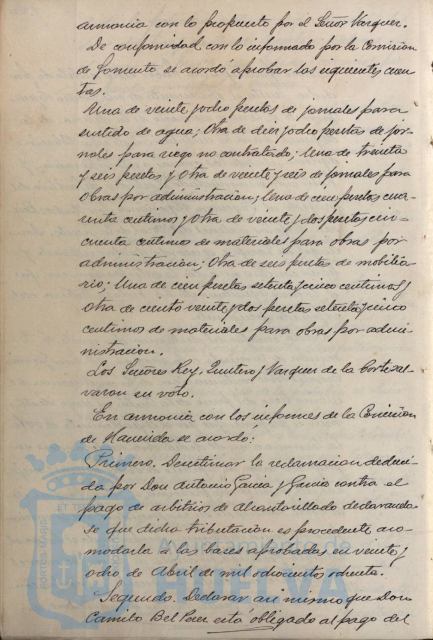 armonía con lo propuesto por el Señor Vazquez.
De conformidad con lo informado por la Comision
de fomento se acordó aprobar las siguientes cuen-
tas.
Una de veinte y ocho pesetas de jornales para
surtido de agua; Otra de diez y ocho pesetas de jor-
nales para riego no contratado; Una de treinta
y seis pesetas y otra de veinte y seis de jornales para
obras por administracion; Una de cien pesetas cua-
renta centimos y otra de veinte y dos pesetas cin-
cuenta centimos de materiales para obras por
administracion; Otra de seis pesetas de mobilia-
rio; Una de cien pesetas setenta y cinco centimos y
otra de ciento veinte y dos pesetas setenta y cinco
centimos de materiales para obras por admi-
nistracion.
Los Señores Rey, Quintero y Vazquez de la Corte sal-
varon su voto.
En armonia con los informes de la Comision
de Hacienda se acordó:
Primero. Desestimar la reclamacion deduci-
da por Don Antonio García y García contra el
pago de arbitrios de Alcantarillado declarando-
se que dicha tributacion es procedente aco-
modarla á las bases aprobadas en veinte y
ocho de Abril de mil ochocientos ochenta.
Segundo. Declarar asi mismo que Don
Camilo Bel está obligado al pago del